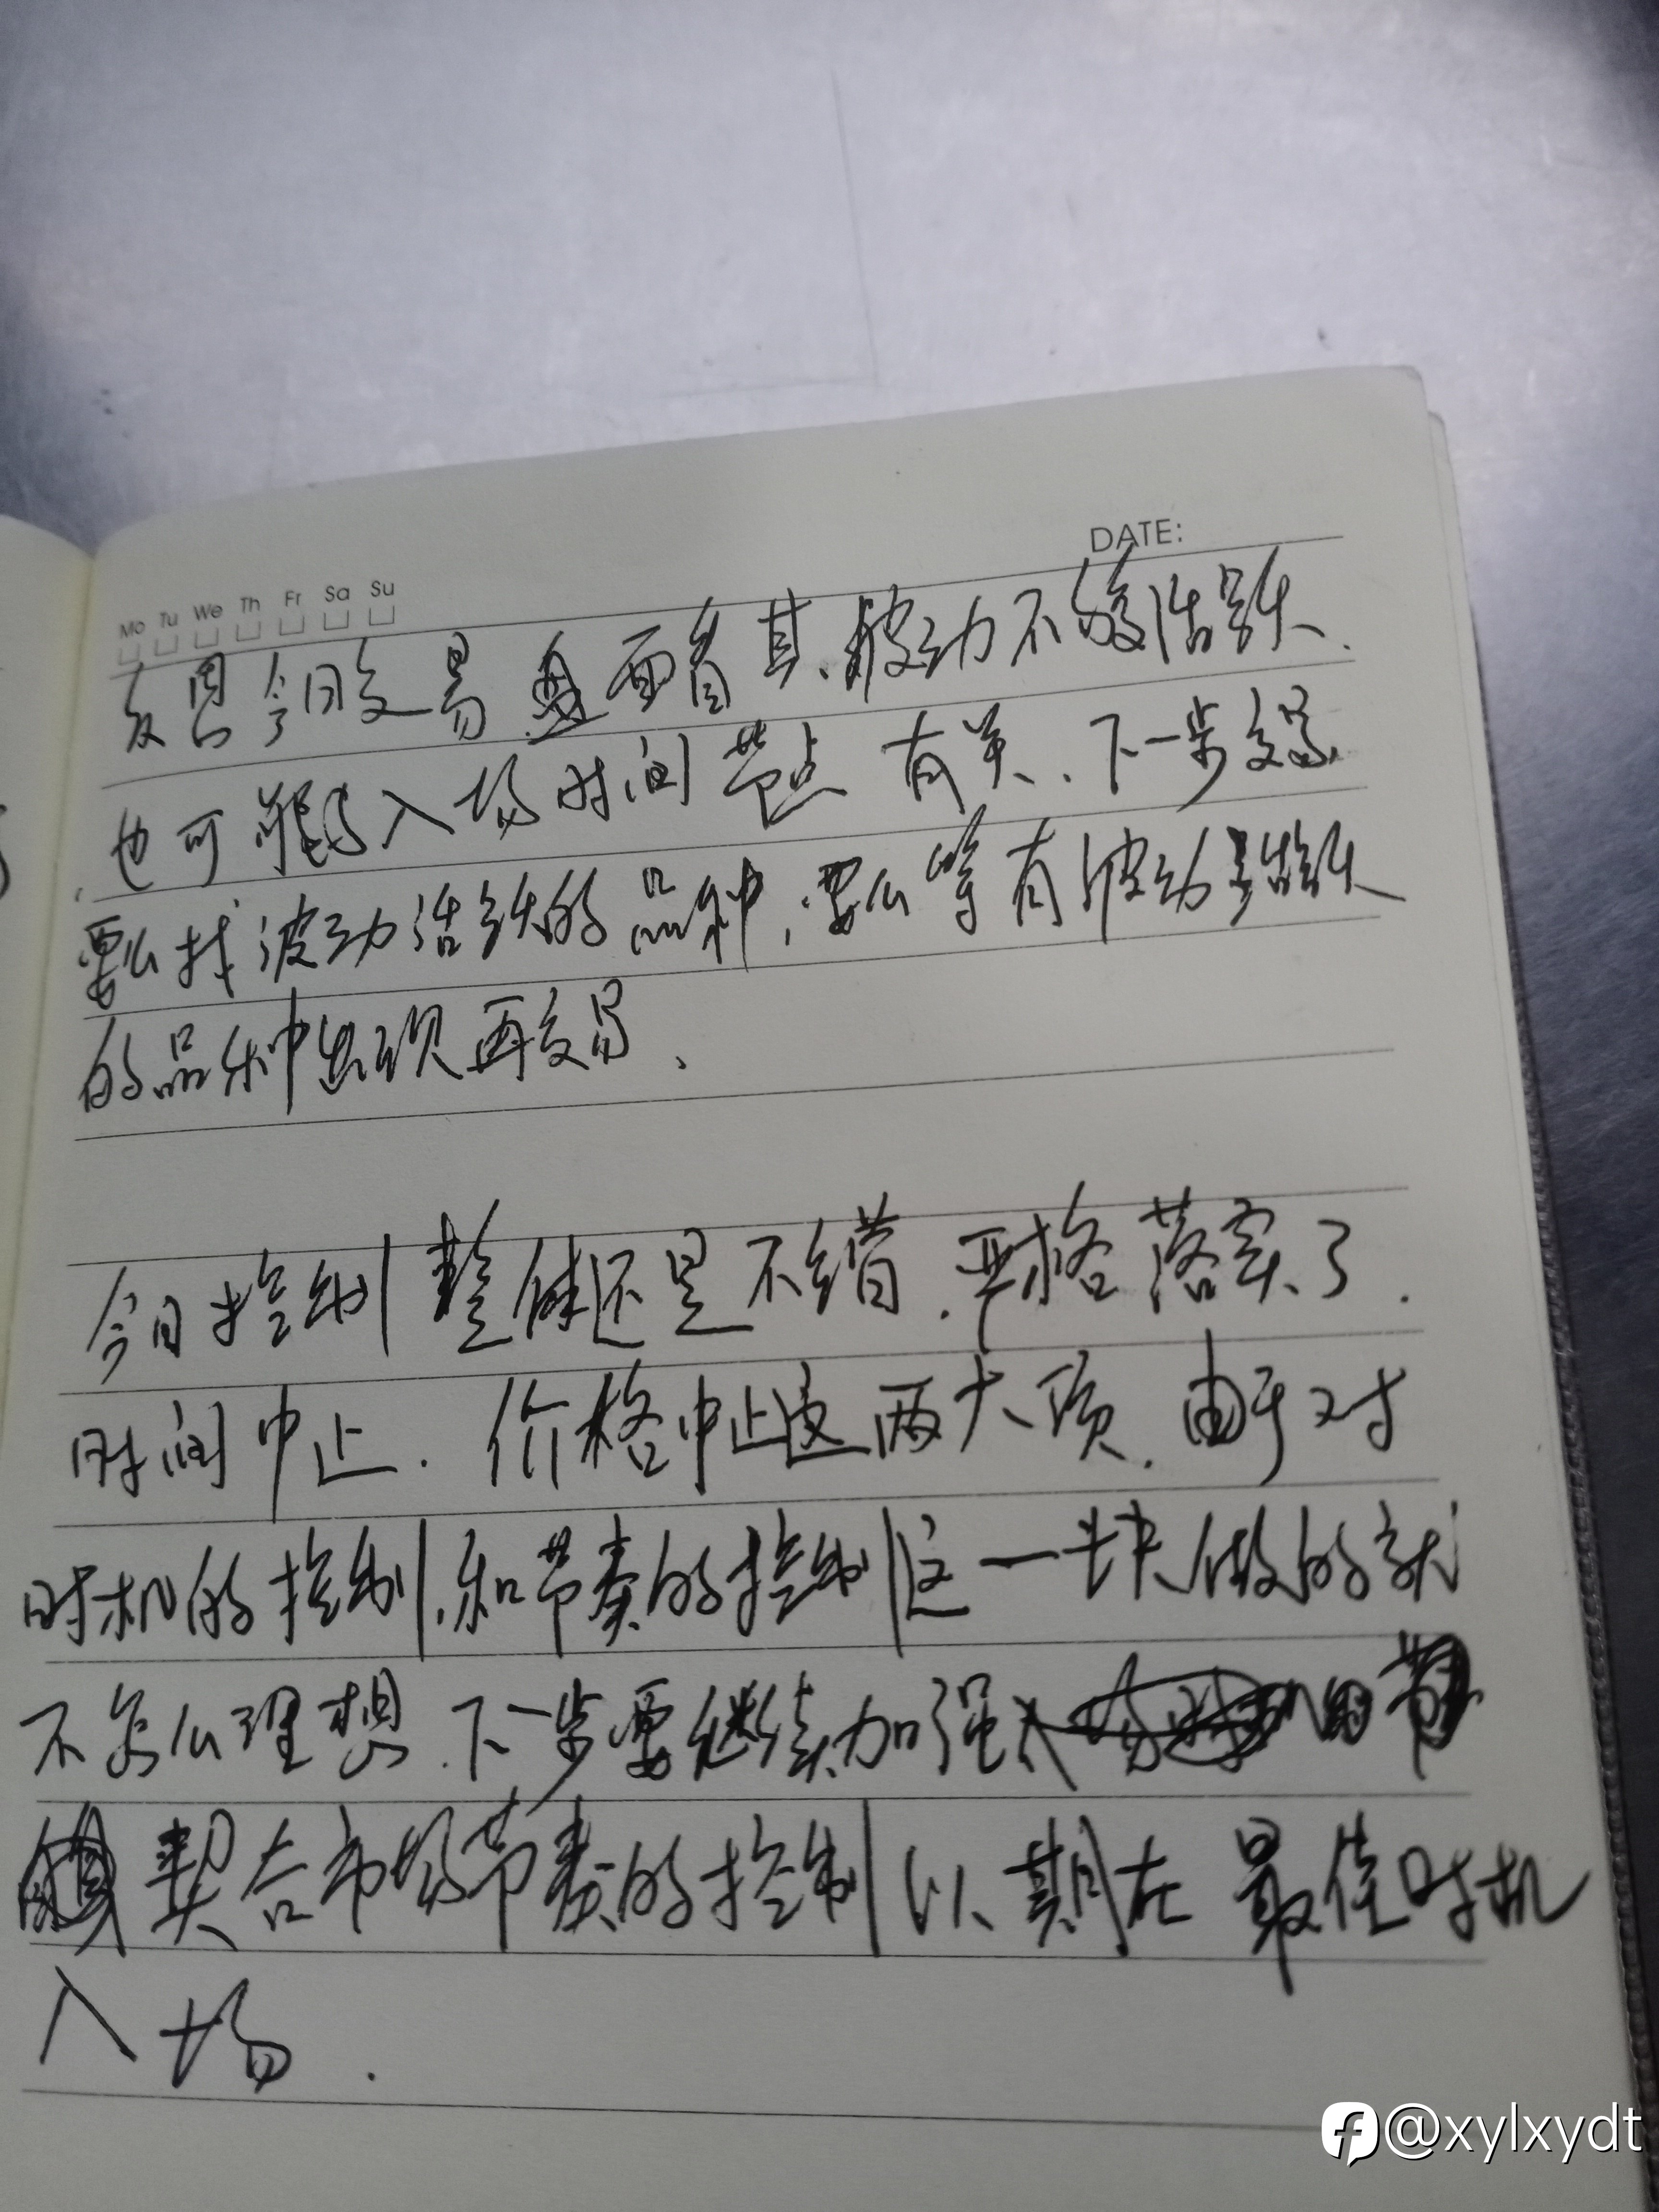 DATE:
Mo Tu We Th Fr Sa Su
反思今日交易盘面看其波动不够活跃、
也可能与入场时间节点有关、下一步交易
要么找波动活跃的品种，要么等有波动活跃
的品种出现再交易、
今日控制整体还是不错，严格落实了.
时间中止. 价格中止这两大项. 由于对
时机的控制、和节奏的控制这一块做的就
不怎么理想. 下一步要继续加强
契合市场节奏的控制以期在最佳时机
入场.
@xylxydt